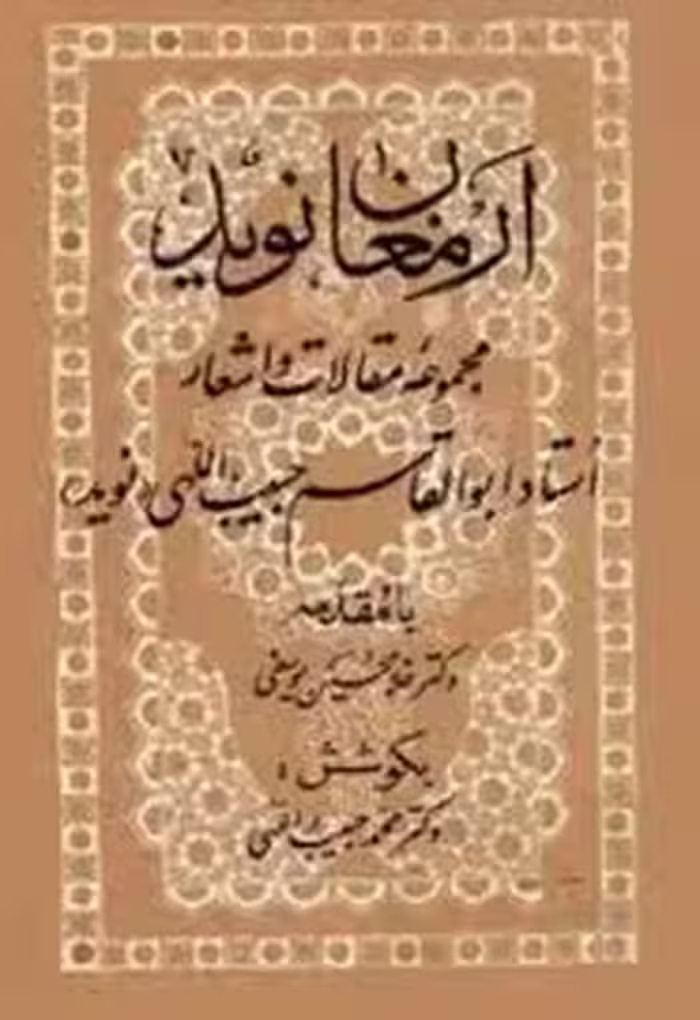 ارمغان نوید
مجموعه مقالات و اشعار
استاد ابوالقاسم حبیب اللهی (نوید)
با مقدمه
دکتر غلامحسین یوسفی
بکوشش :
دکتر محمد حبیب اللهی